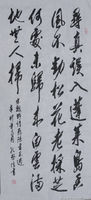 尋真誤入蓬莱島香
風不動松花老採芝
何處未歸来白雲滿
地無人掃